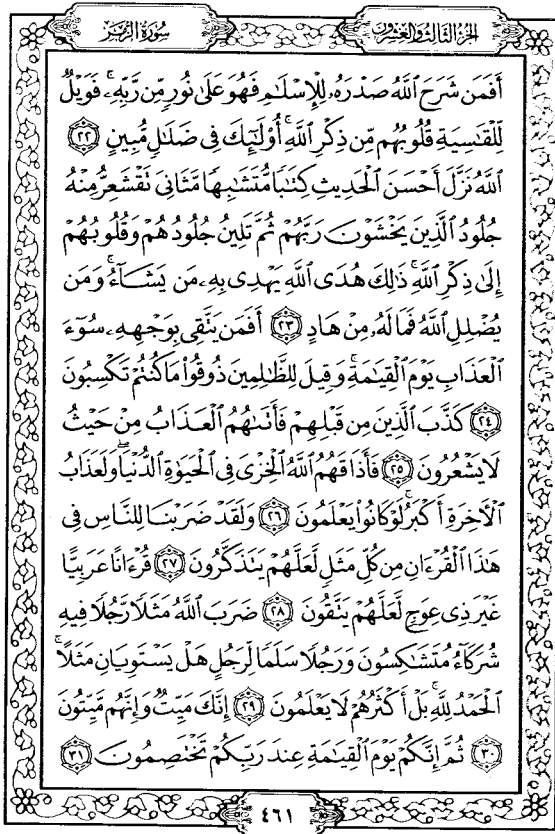 سُورَةُ الزُّمَرِ
الجُزءُ الثَّالِثُ وَالعِشْرُونَ
أَفَمَن شَرَحَ ٱللَّهُ صَدْرَهُۥ لِلْإِسْلَٰمِ فَهُوَ عَلَىٰ نُورٍ مِّن رَّبِّهِۦ ۚ فَوَيْلٌ
لِّلْقَٰسِيَةِ قُلُوبُهُم مِّن ذِكْرِ ٱللَّهِ ۚ أُو۟لَٰٓئِكَ فِى ضَلَٰلٍ مُّبِينٍ ٢٢
ٱللَّهُ نَزَّلَ أَحْسَنَ ٱلْحَدِيثِ كِتَٰبًا مُّتَشَٰبِهًا مَّثَانِىَ تَقْشَعِرُّ مِنْهُ
جُلُودُ ٱلَّذِينَ يَخْشَوْنَ رَبَّهُمْ ثُمَّ تَلِينُ جُلُودُهُمْ وَقُلُوبُهُمْ
إِلَىٰ ذِكْرِ ٱللَّهِ ۚ ذَٰلِكَ هُدَى ٱللَّهِ يَهْدِى بِهِۦ مَن يَشَآءُ ۚ وَمَن
يُضْلِلِ ٱللَّهُ فَمَا لَهُۥ مِنْ هَادٍ ٢٣ أَفَمَن يَتَّقِى بِوَجْهِهِۦ سُوٓءَ
ٱلْعَذَابِ يَوْمَ ٱلْقِيَٰمَةِ ۚ وَقِيلَ لِلظَّٰلِمِينَ ذُوقُوا۟ مَا كُنتُمْ تَكْسِبُونَ
٢٤ كَذَّبَ ٱلَّذِينَ مِن قَبْلِهِمْ فَأَتَىٰهُمُ ٱلْعَذَابُ مِنْ حَيْثُ
لَا يَشْعُرُونَ ٢٥ فَأَذَاقَهُمُ ٱللَّهُ ٱلْخِزْىَ فِى ٱلْحَيَوٰةِ ٱلدُّنْيَا ۖ وَلَعَذَابُ
ٱلْءَاخِرَةِ أَكْبَرُ ۚ لَوْ كَانُوا۟ يَعْلَمُونَ ٢٦ وَلَقَدْ ضَرَبْنَا لِلنَّاسِ فِى
هَٰذَا ٱلْقُرْءَانِ مِن كُلِّ مَثَلٍ لَّعَلَّهُمْ يَتَذَكَّرُونَ ٢٧ قُرْءَانًا عَرَبِيًّا
غَيْرَ ذِى عِوَجٍ لَّعَلَّهُمْ يَتَّقُونَ ٢٨ ضَرَبَ ٱللَّهُ مَثَلًا رَّجُلًا فِيهِ
شُرَكَآءُ مُتَشَٰكِسُونَ وَرَجُلًا سَلَمًا لِّرَجُلٍ هَلْ يَسْتَوِيَانِ مَثَلًا ۚ
ٱلْحَمْدُ لِلَّهِ ۚ بَلْ أَكْثَرُهُمْ لَا يَعْلَمُونَ ٢٩ إِنَّكَ مَيِّتٌ وَإِنَّهُم مَّيِّتُونَ
٣٠ ثُمَّ إِنَّكُمْ يَوْمَ ٱلْقِيَٰمَةِ عِندَ رَبِّكُمْ تَخْتَصِمُونَ ٣١
٤٦١